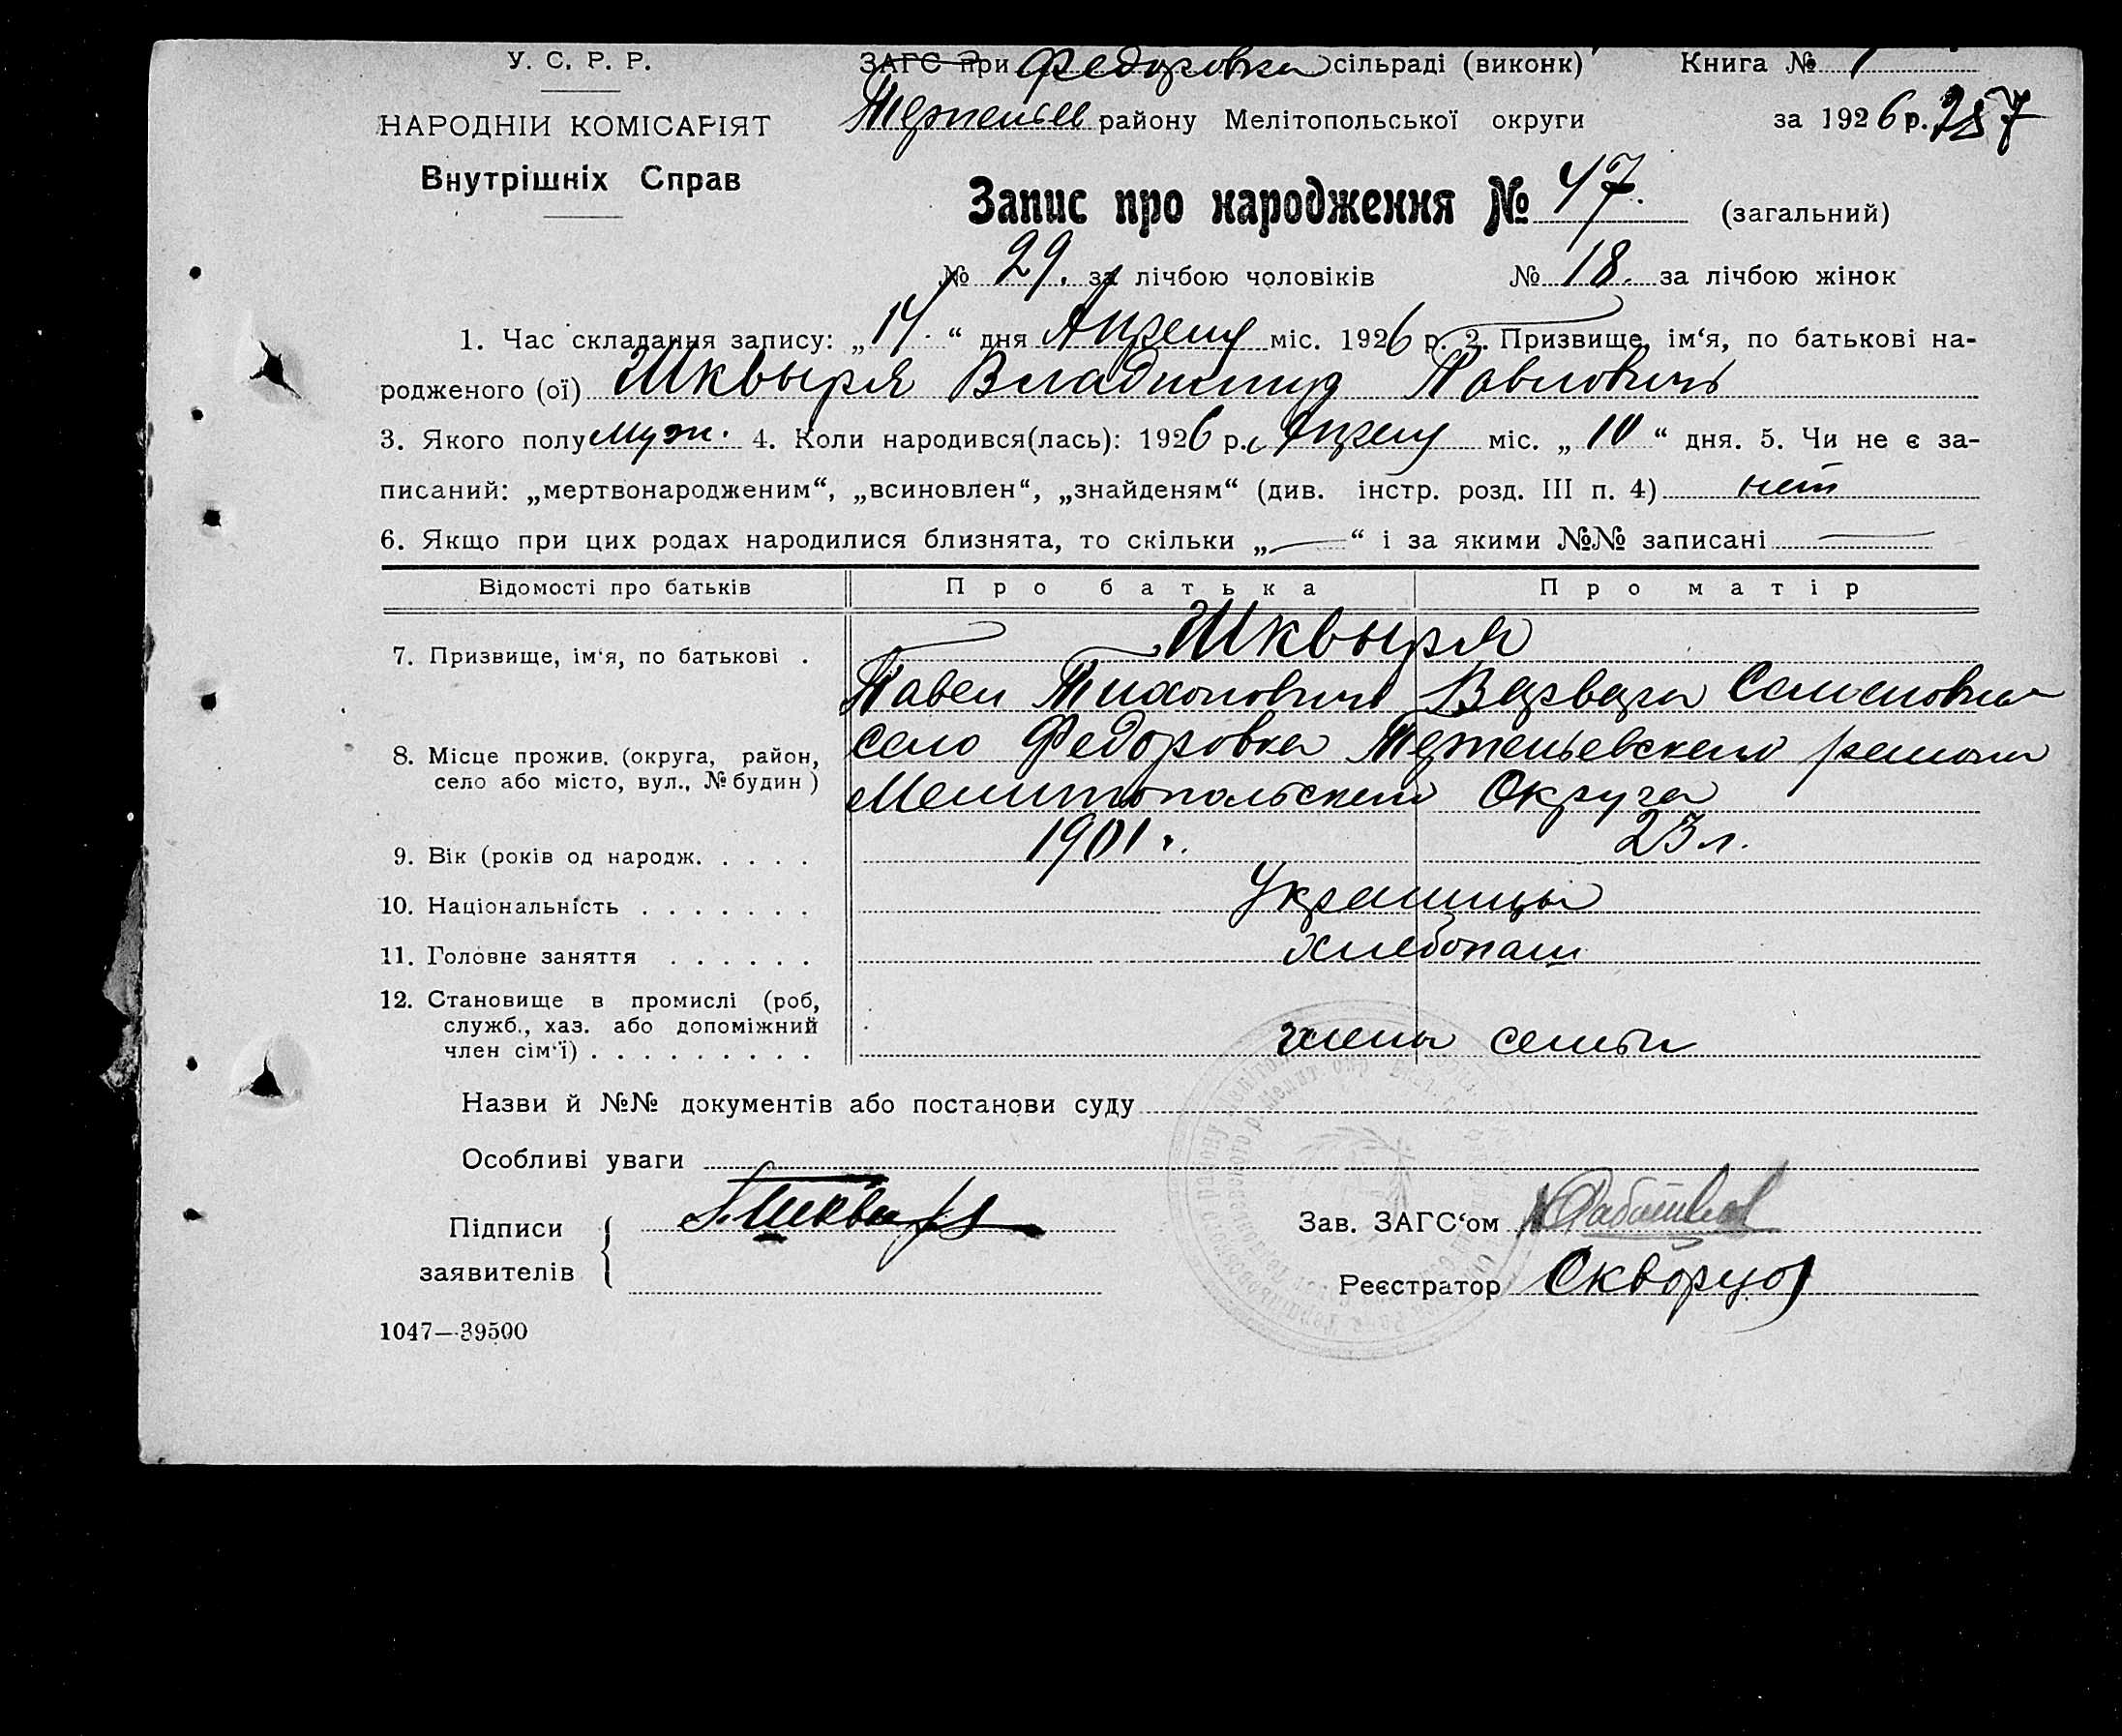 У. С. Р. Р.
НАРОДНІЙ КОМІСАРІЯТ
Внутрішніх Справ
ЗАГС при Федоровка сільраді (виконк)
Книга № 1
району Мелітопольської округи
за 1926 р. 287
Запис про народження № 47. (загальний)
№ 29. за лічбою чоловіків № 18. за лічбою жінок
1. Час складання запису: „14.“ дня Апреля міс. 1926 р. 2. Призвище, ім‘я, по батькові на-
родженого (ої) Шквыря Владимир Павлович
3. Якого полу муж. 4. Коли народився(лась): 1926 р. Апреля міс. „10“ дня. 5. Чи не є за-
писаний: „мертвонародженим“, „всиновлен“, „знайденям“ (див. інстр. розд. III п. 4) нет
6. Якщо при цих родах народилися близнята, то скільки „—“ і за якими №№ записані —
Відомості про батьків Про батька Про матір
7. Призвище, ім‘я, по батькові . Шквыря
Павел Тихонович Варвара Семеновна
8. Місце прожив. (округа, район, село або місто, вул., № будин )
село Федоровка района
Мелитопольского Округа
9. Вік (років од народж. . . . . 1901 г. 23 л.
10. Національність . . . . . . . Украинцы
11. Головне заняття . . . . . . хлебопаш
12. Становище в промислі (роб,
служб., хаз. або допоміжний
член сім‘ї) . . . . . . . . . члены семьи
Назви й №№ документів або постанови суду
Особливі уваги
Підписи
заявителів
Зав. ЗАГС‘ом
Реєстратор Скворцов
1047—39500